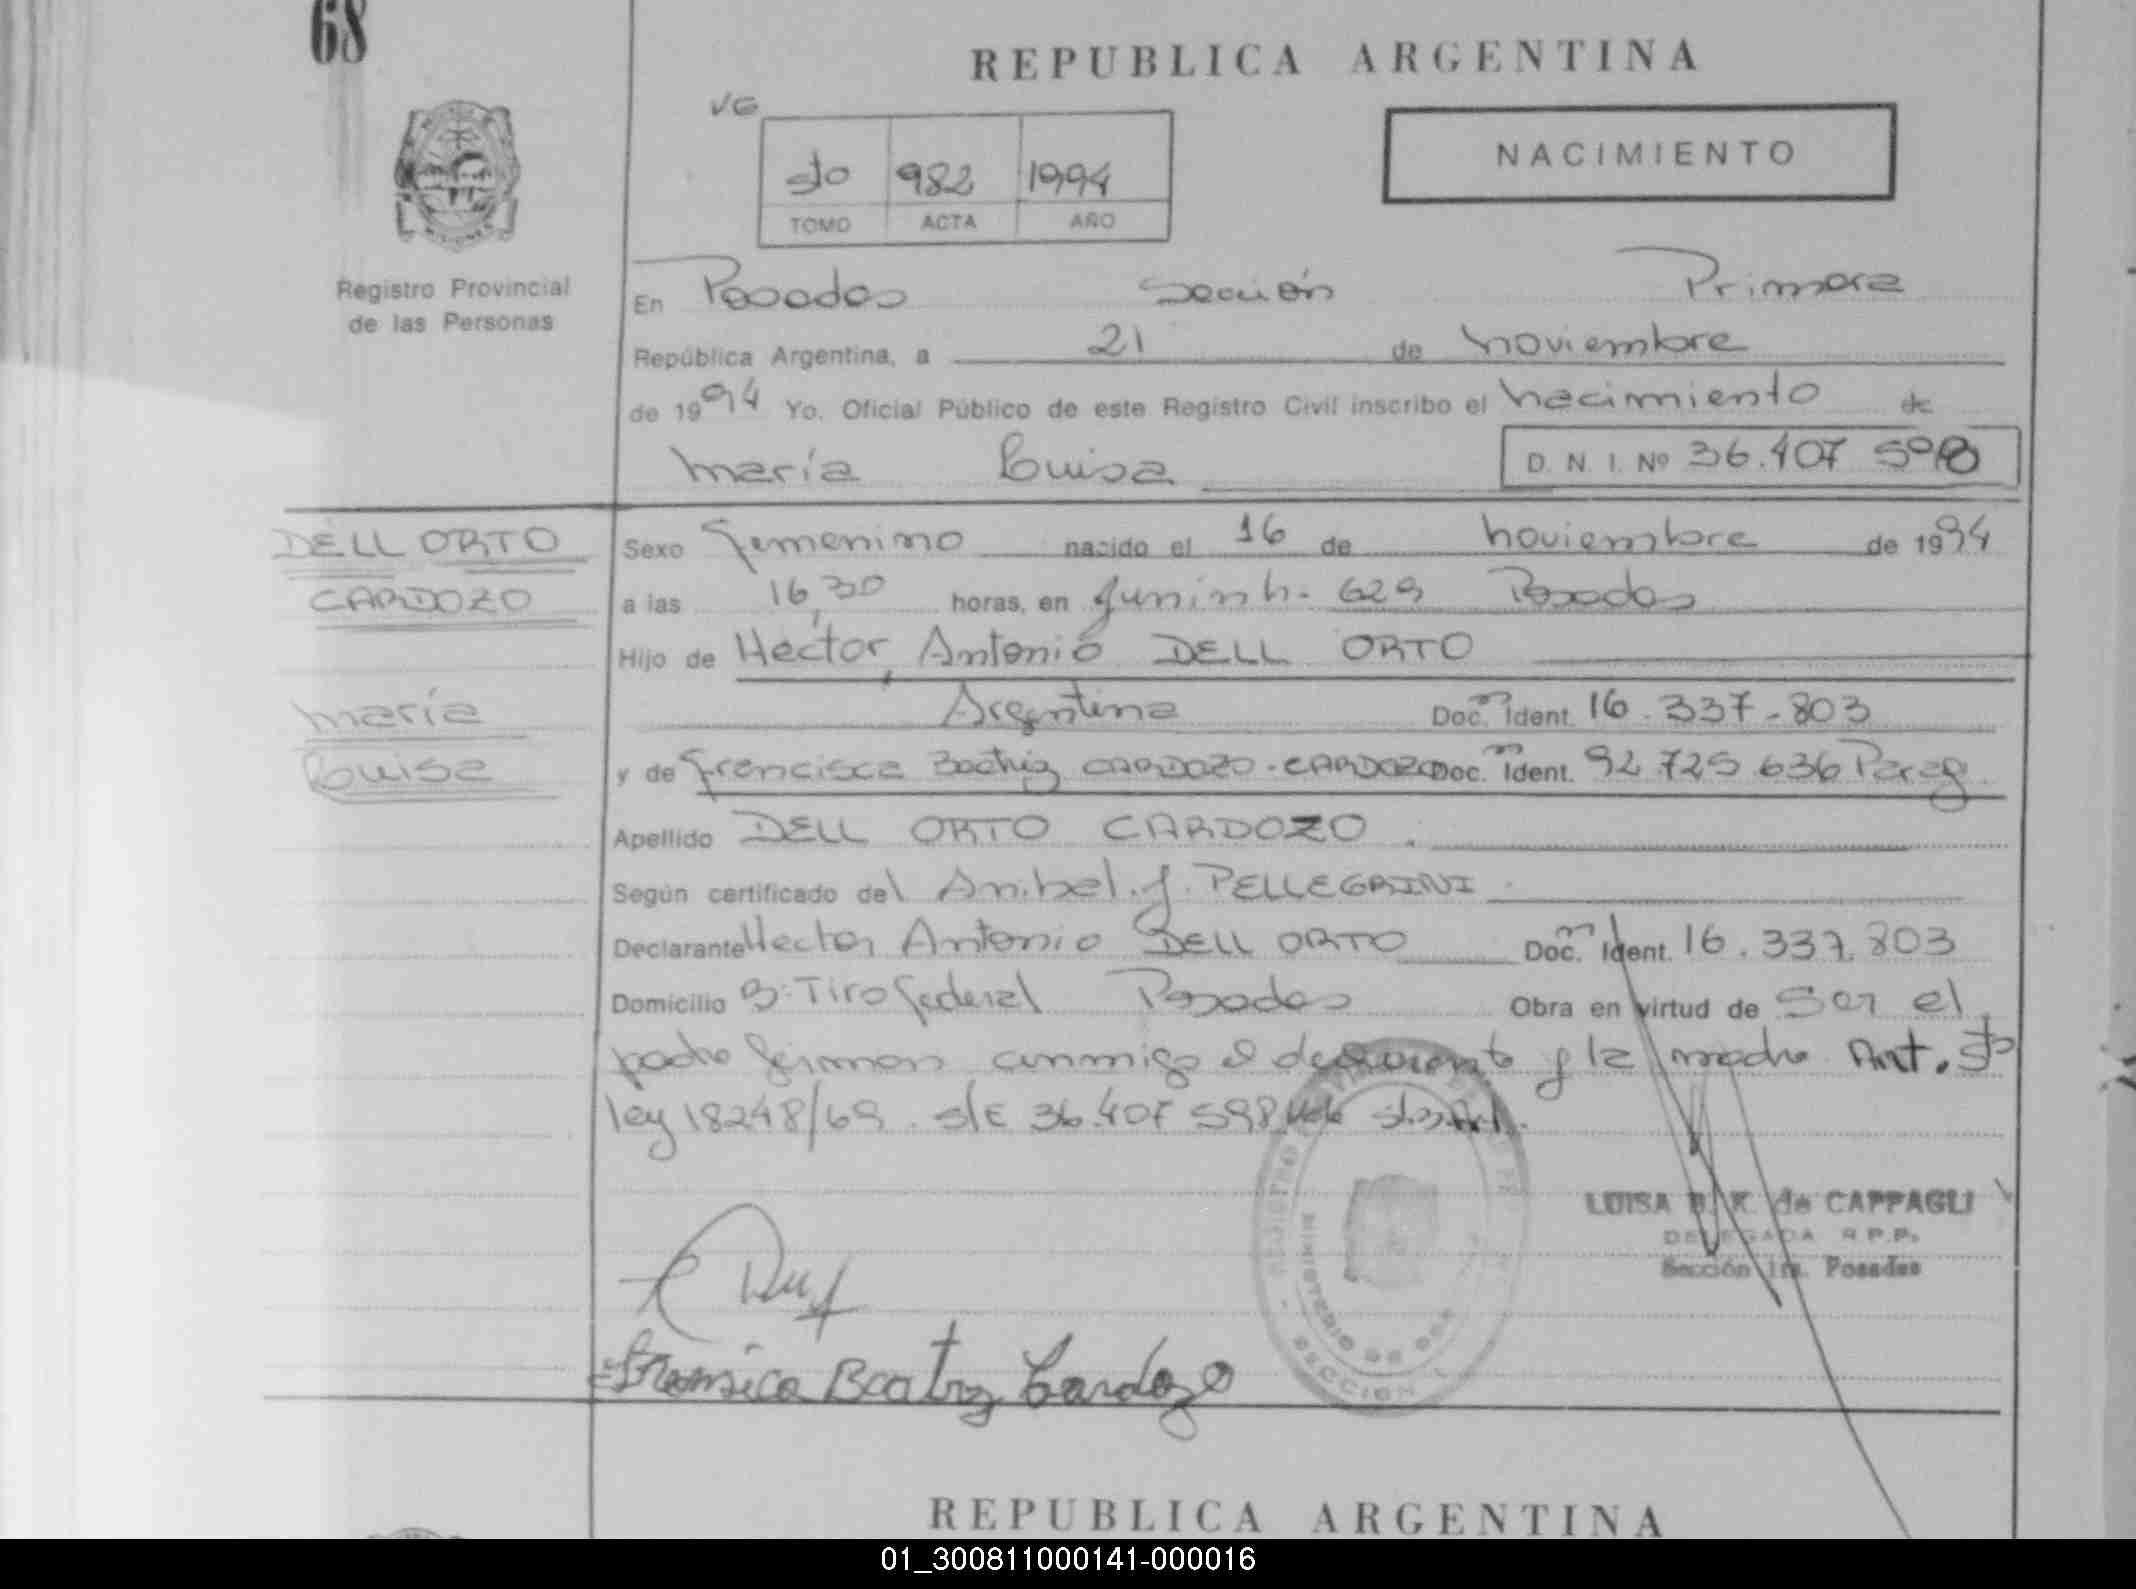 68
REPUBLICA ARGENTINA
VG
NACIMIENTO
5to 982 1994
TOMO ACTA AÑO
MISIONES
Registro Provincial
de las Personas
En Posadas Sección Primera
República Argentina, a 21 de noviembre
de 1994 Yo, Oficial Público de este Registro Civil inscribo el nacimiento de
María Luisa D. N. I. Nº 36.407 598
DELL ORTO
CARDOZO
María
Luisa
Sexo femenino nacido el 16 de noviembre de 1994
a las 16,30 horas, en Junín h. 629 Posadas
Hijo de Héctor Antonio DELL ORTO
Argentina Doc. Ident. 16.337.803
y de Francisca Beatriz CARDOZO - CARDOZO Doc. Ident. 92 725 636 Parag.
Apellido DELL ORTO CARDOZO.
Según certificado del Anibal J. PELLEGRINI
Declarante Hector Antonio DELL ORTO Doc. Ident. 16.337.803
Domicilio B: Tiro federal Posadas Obra en virtud de Ser el
padre firman conmigo el declarante y la madre Art. 5to
ley 18248/69. S/E 36.407 598 Vale
LUISA B. K. de CAPPAGLI
DELEGADA R.P.P.
Sección 1ra. Posadas
REGISTRO
MINISTERIO DE
SECCION 1
Francisca Beatriz Cardozo
REPUBLICA ARGENTINA
01_300811000141-000016